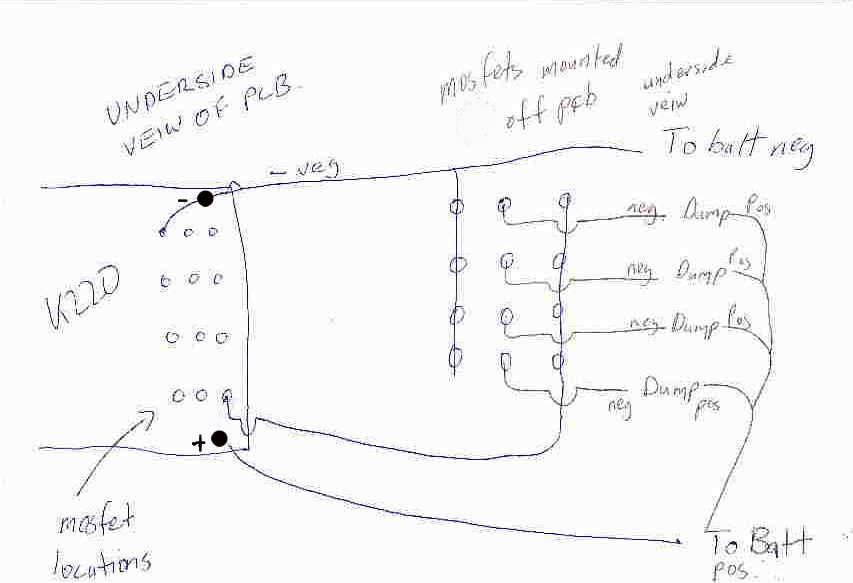 UNDERSIDE
VEIW OF PCB.
mosfets mounted
off pcb
underside
veiw
To batt neg
- neg
-
K220
neg Dump Pos
neg Dump Pos
neg Dump Pos
neg Dump pos
+
mosfet
locations
To Batt
pos.